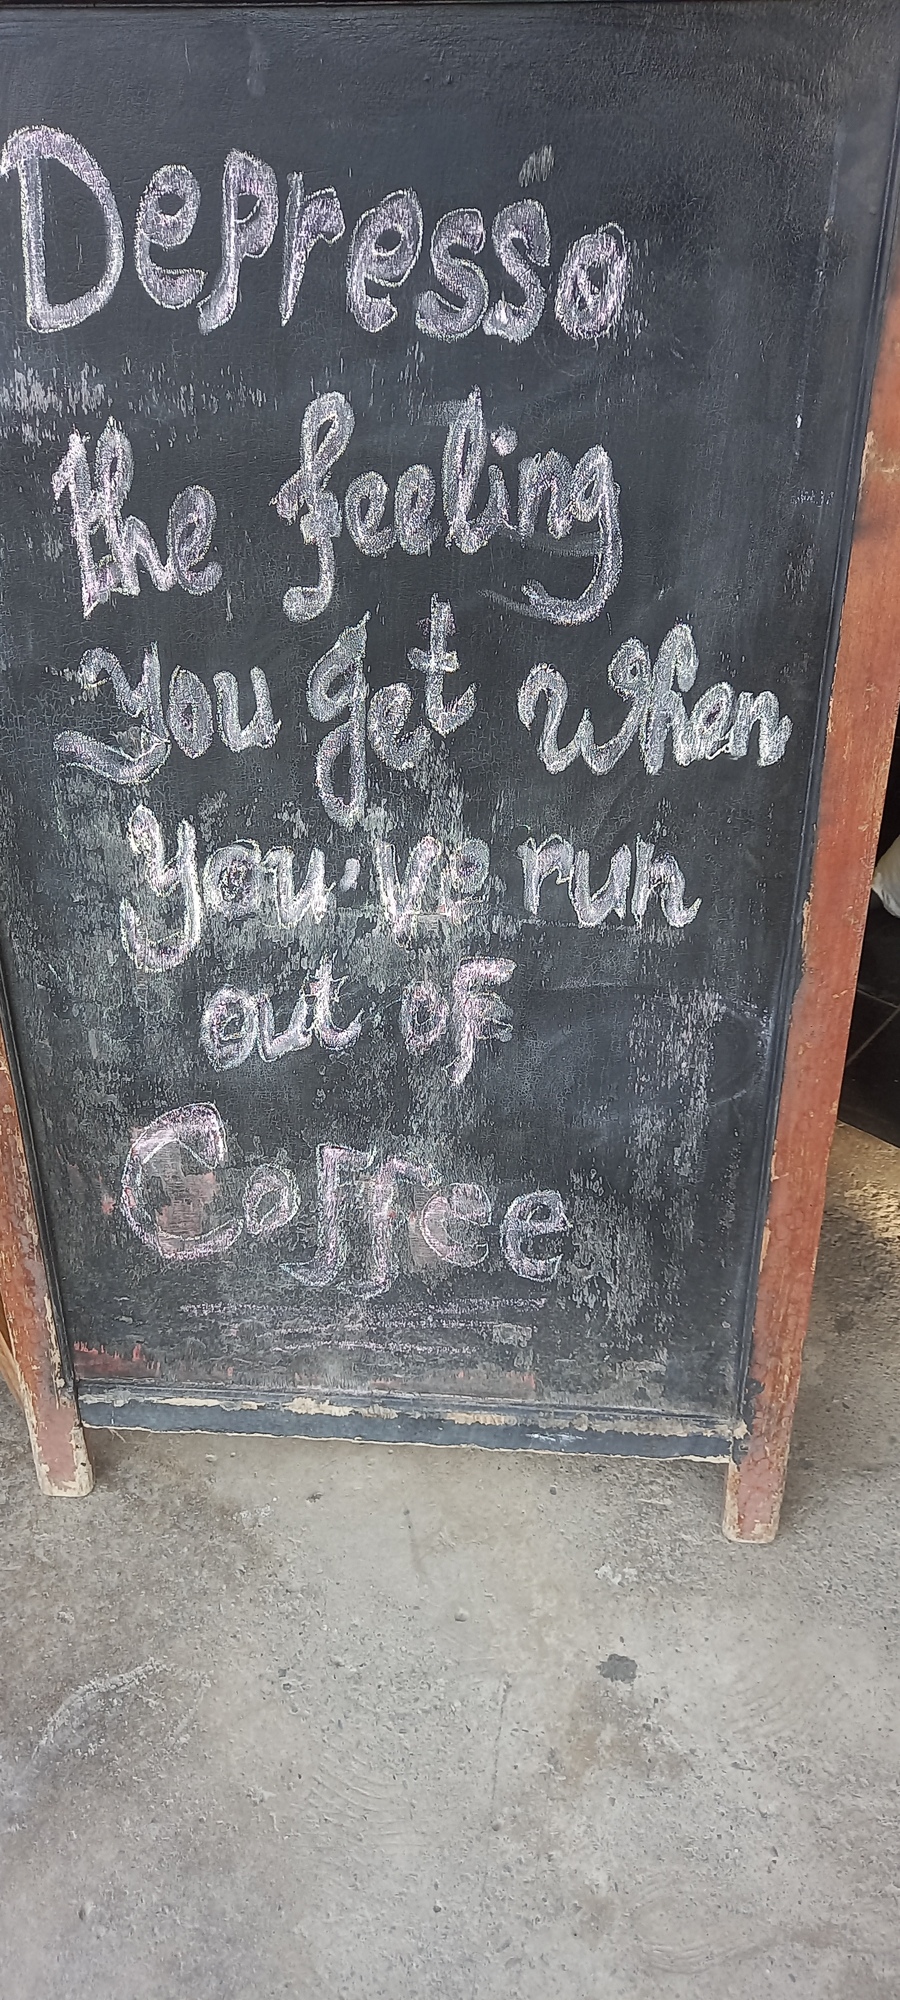 Depresso
the feeling
you get when
you've run
out of
Coffee